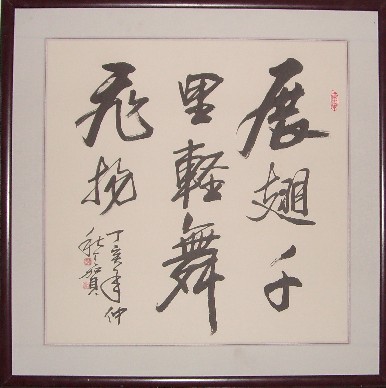 展翅千
里軽舞
飛揚
丁亥年仲
秋賀